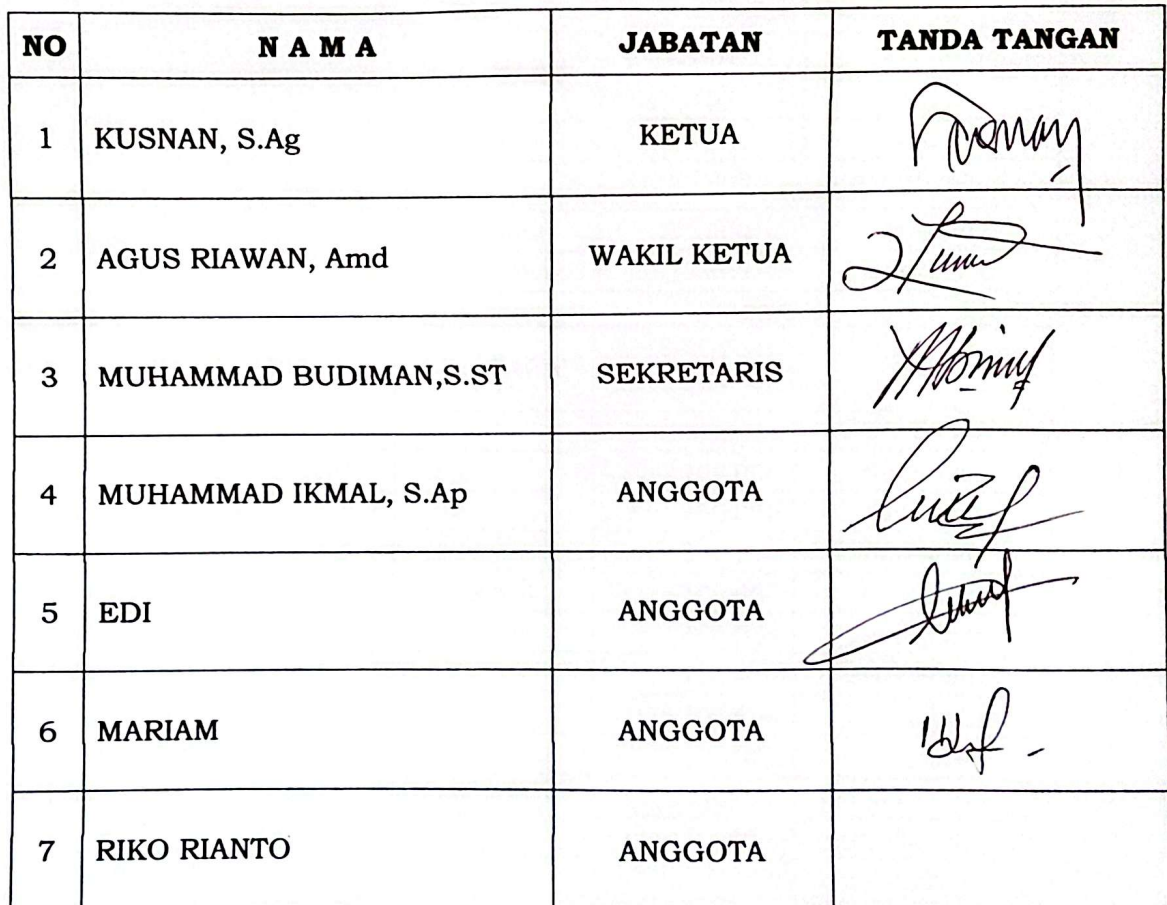 NO N A M A JABATAN TANDA TANGAN
1 KUSNAN, S.Ag KETUA
2 AGUS RIAWAN, Amd WAKIL KETUA
3 MUHAMMAD BUDIMAN,S.ST SEKRETARIS
4 MUHAMMAD IKMAL, S.Ap ANGGOTA
5 EDI ANGGOTA
6 MARIAM ANGGOTA
7 RIKO RIANTO ANGGOTA